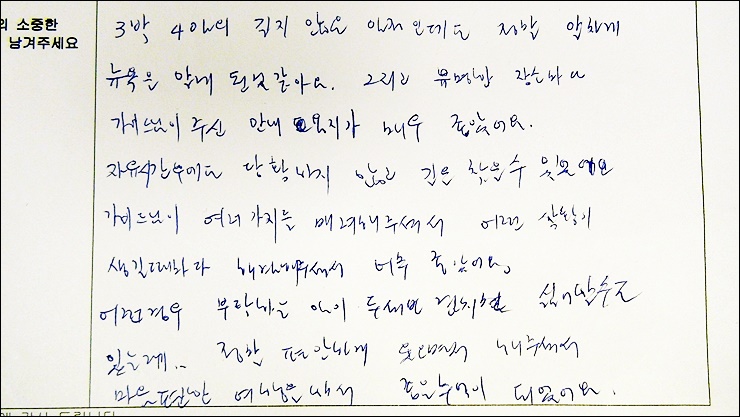 의 소중한
남겨주세요
3박 4일의 길지 않은 일정인데도 정말 알차게
뉴욕을 알게 된것 같아요. 그리고 유명한 장소마다
가이드님이 주신 안내 요지가 매우 좋았어요.
자유시간에도 당황하지 않고 길을 찾을수 있었어요
가이드님이 여러가지를 배려해주셔서 어떤 상황이
생길때마다 해결해주셔서 너무 좋았어요.
어떤경우 부탁하는 말이 두세번 싫어할수도
있는데.. 정말 편안하게 해주셔서
마음편한 여행을 해서 좋은추억이 되었어요.